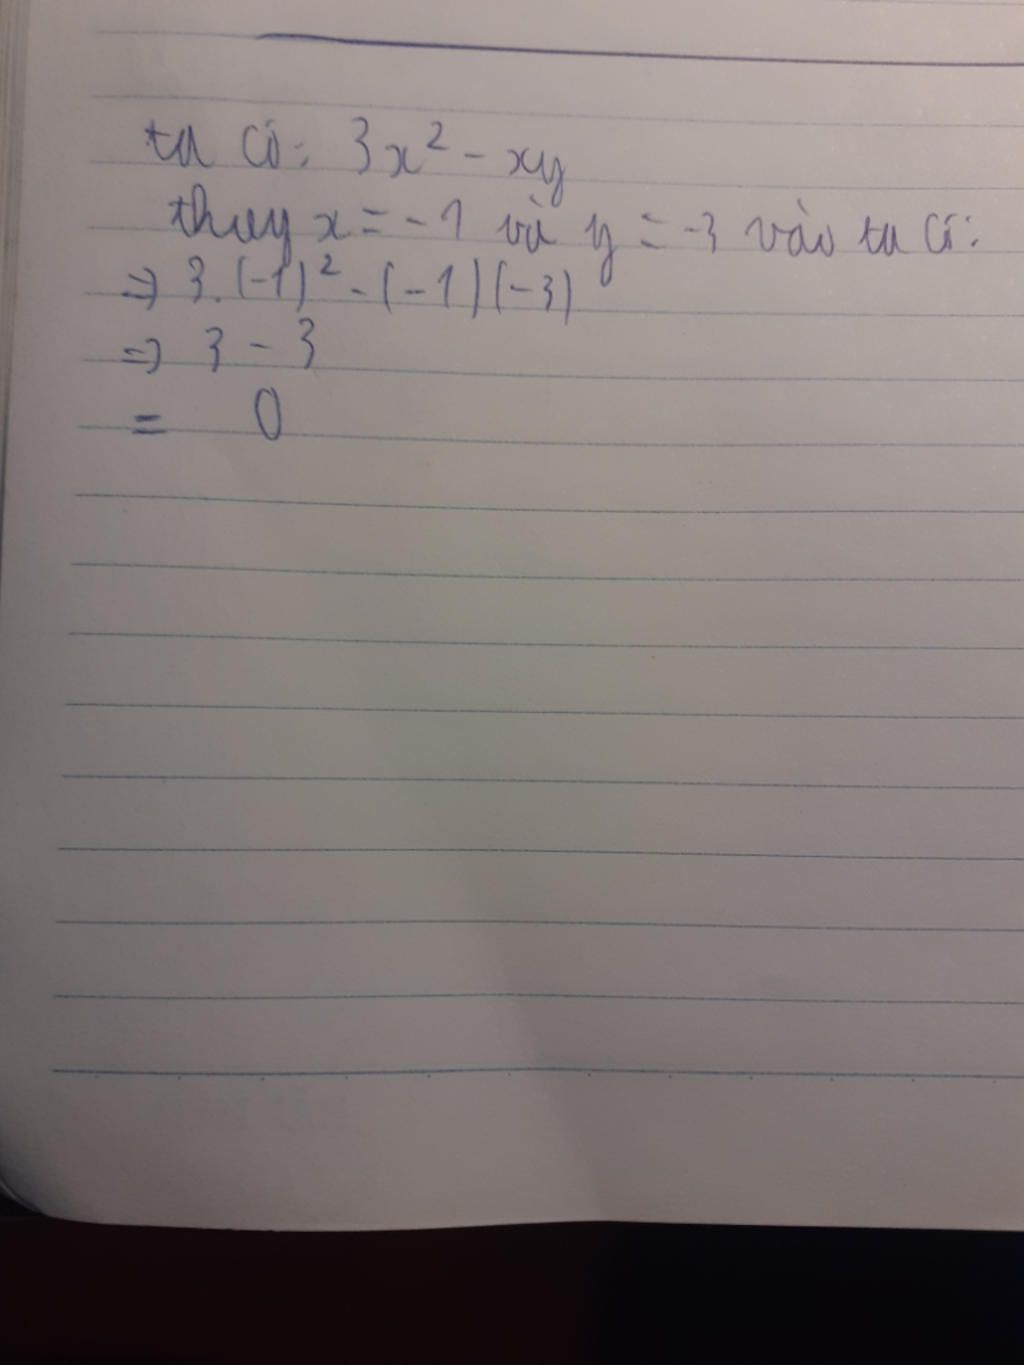 ta có: 3x² - xy
thay x = -1 và y = -3 vào ta có:
=> 3. (-1)² - (-1)(-3)
=> 3 - 3
= 0